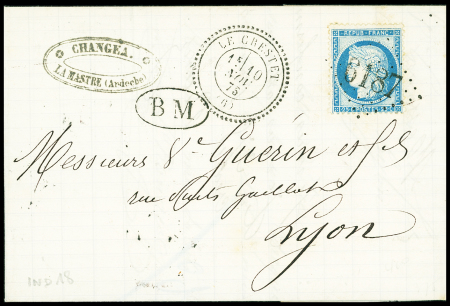 CHANGEA.
LA MASTRE (Ardèche)
LE CRESTET
10
75
(6)
B M
REPUB. FRANC.
25 c. POSTES 25 c.
Messieurs Ve Guerin et fils
rue Puits Gaillot
Lyon
IND 18